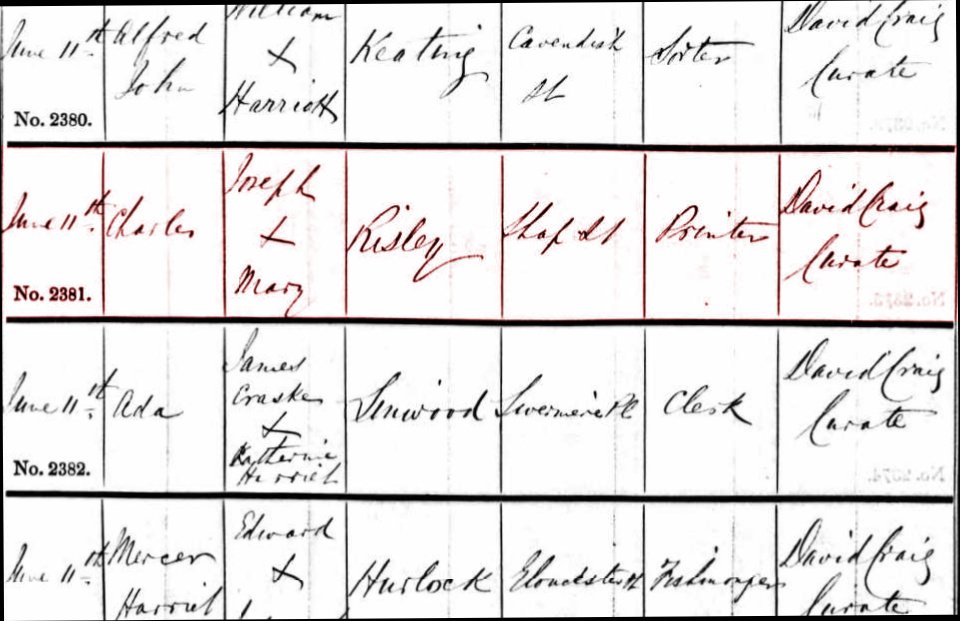 June 11th Alfred John William + Harriett Keating Cavendish St Sorter David Craig Curate
No. 2380.
June 11th Charles Joseph + Mary Risley Shap St Printer David Craig Curate
No. 2381.
June 11th Ada James Crasker + Katherine Harriet Linwood Livermere Rd Clerk David Craig Curate
No. 2382.
June 11th Mercer Harriet Edward + Hurlock Gloucester St Fishmonger David Craig Curate